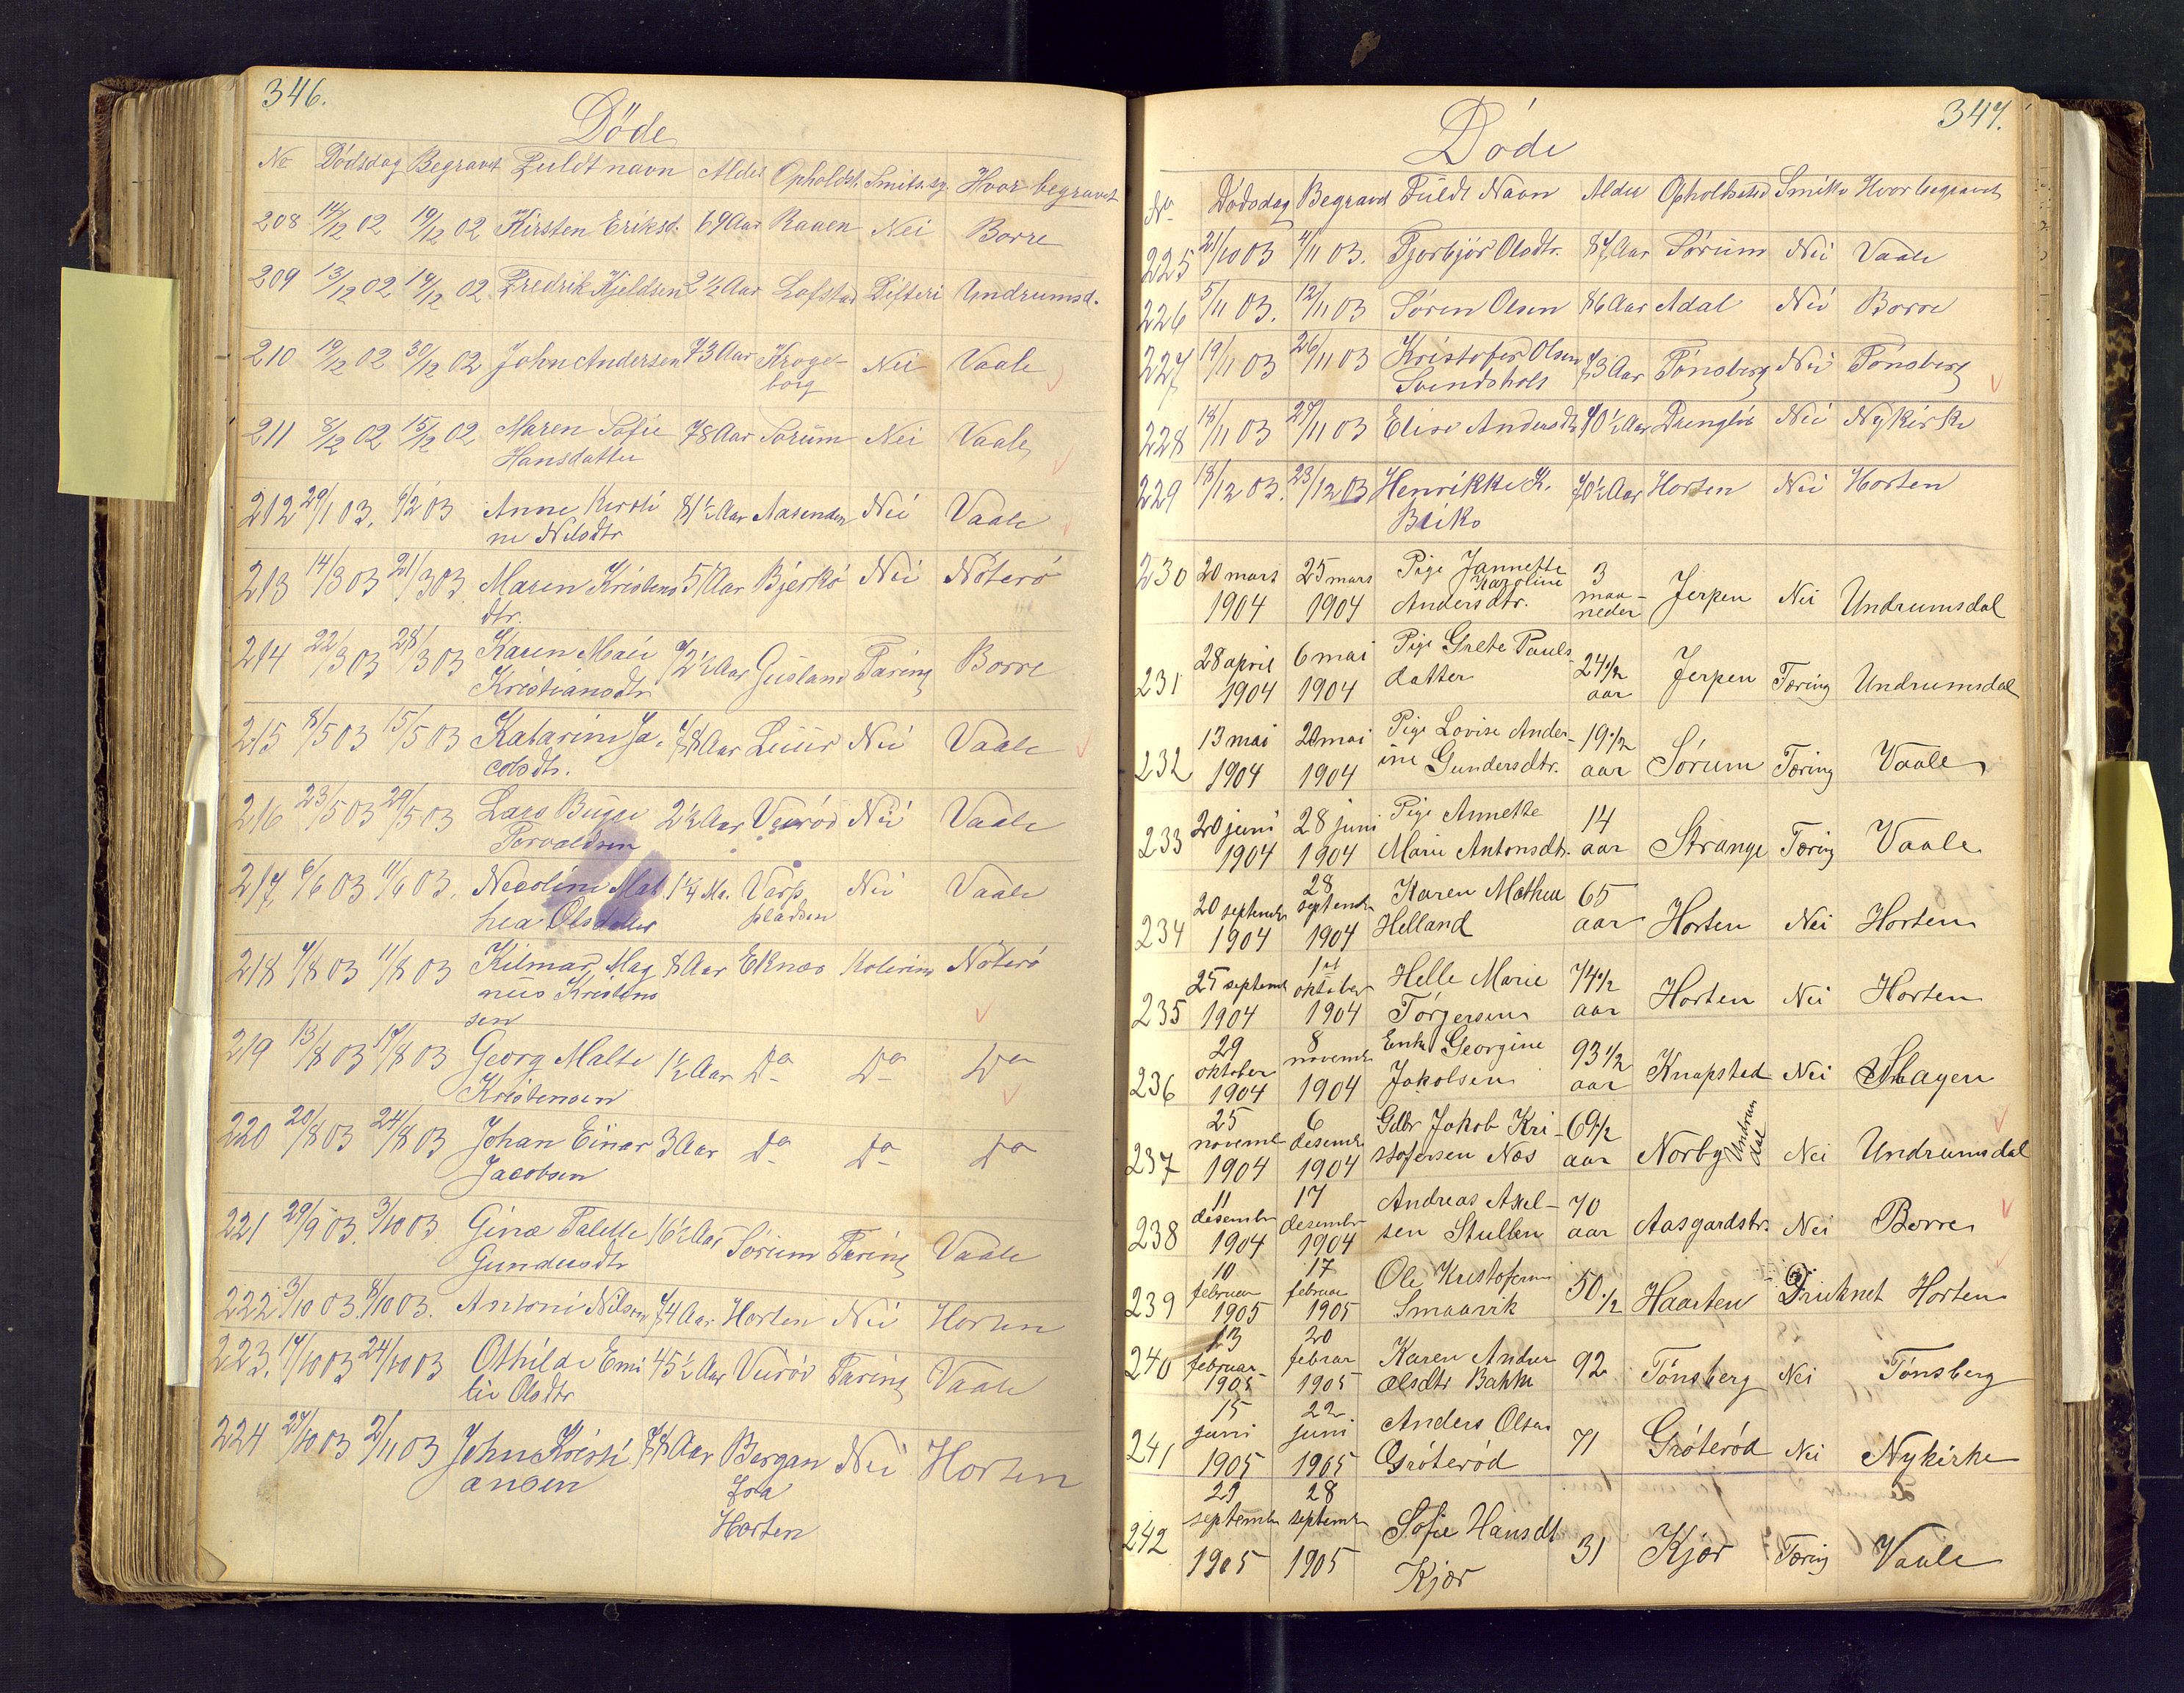 346.
Döde
No Dödsdag Begravet Fuldt navn Alder Opholdst. Smits. sg. Hvor begravet
208 14/12 02 19/12 02 Kirsten Eriksd. 69 Aar Raaen Nei Borre
209 13/12 02 19/12 02 Fredrik Kjeldsen 2½ Aar Lofstad Difteri Undrumsd.
210 19/12 02 30/12 02 John Andersen 73 Aar Kroge- Nei Vaale
borg
211 8/12 02 15/12 02 Maren Sofie 78 Aar Sorum Nei Vaale
Hansdatter
212 29/1 03. 6/2 03 Anne Kirsti 81½ Aar Aasenden Nei Vaale
ne Nilsdtr
213 14/3 03 21/3 03 Maren Kristens 51 Aar Bjerkö Nei Nöterö
dtr.
214 22/3 03 28/3 03 Karen Marie 72½ Aar Gusland Tæring Borre
Kristiansdtr
215 8/5 03 15/5 03 Katarine Ja- 78 Aar Luur Nei Vaale
cobsdtr.
216 23/5 03 29/5 03 Lars Bugge 2½ Aar Veuröd Nei Vaale
Torvaldsen
217 6/6 03 11/6 03. Necoline Mat 1¼ Ma. Varp Nei Vaale
hea Olsdatter pladsen
218 7/8 03 11/8 03 Kilmar Mag 8 Aar Eknæs Kolerine Nöterö
nus Kristens
sen
219 13/8 03 17/8 03 Georg Malte 1½ Aar Do Do Do
Kristensen
220 20/8 03 24/8 03 Johan Einar 3 Aar Do Do Do
Jacobsen
221 29/9 03. 3/10 03 Gina Talette 16½ Aar Sörum Tæring Vaale
Gundersdtr
222 3/10 03. 8/10 03. Antoni Nilsen 74 Aar Horten Nei Horten
223. 17/10 03 24/10 03 Othilde Emi 45½ Aar Veuröd Tæring Vaale
lie Olsdtr
224 27/10 03 2/11 03 John Kristi 78 Aar Bergan Nei Horten
ansen fra
Horten
347.
Döde
No Dödsdag Begravet Fuldt Navn Alder Opholdssted Smitts Hvor begravet
225 21/10 03 4/11 03. Torbjör Olsdtr. 87 Aar Sörum Nei Vaale
226 5/11 03. 12/11 03 Sören Olsen 86 Aar Adal Nei Borre
227 19/11 03 26/11 03 Kristofer Olsen 73 Aar Tönsberg Nei Tönsberg
Svendsholt
228 18/11 03 27/11 03 Elise Andersdtr 70½ Aar Drengsö Nei Nykirke
229 18/12 03. 23/12 03 Henrikke K. 70½ Aar Horten Nei Horten
Briks
230 20 mars 25 mars Pige Jannette 3 Jerpen Nei Undrumsdal
Karoline maa-
1904 1904 Andersdtr. neder
231 28 april 6 mai Pige Grete Pauls- 24 1/2 Jerpen Tæring Undrumsdal
1904 1904 datter aar
232 13 mai 20 mai Pige Lovise Ander- 19 1/2 Sörum Tæring Vaale
1904 1904 ine Gundersdtr. aar
233 20 juni 28 juni Pige Annette 14 Strange Tæring Vaale
1904 1904 Marie Antonsdtr. aar
234 20 septembr 28 septembr Karen Mathea 65 Horten Nei Horten
1904 1904 Helland aar
235 25 septembr 1st oktober Helle Marie 74 1/2 Horten Nei Horten
1904 1904 Törgersen aar
236 29 oktober 8 novembr Enke Georgine 93 1/2 Knapstad Nei Slagen
1904 1904 Jakobsen aar
237 25 novembr 6 desembr Gdbr Jakob Kri- 69 1/2 Norby Undrumsdal Nei Undrumsdal
1904 1904 stofersen Næs aar
238 11 desembr 17 desembr Andreas Axel- 70 Aasgardstr. Nei Borre
1904 1904 sen Stulen aar
239 10 februar 17 februar Ole Kristofersen 50 1/2 Haarten Druknet Horten
1905 1905 Smaavik
240 13 februar 20 februar Karen Andrea 92 Tönsberg Nei Tönsberg
1905 1905 Olsdtr Bakke
241 15 juni 22 juni Anders Olsen 71 Gröteröd Nei Nykirke
1905 1905 Gröteröd
242 23 septembr 28 septembr Sofie Hansdt 31 Kjær Tæring Vaale
1905 1905 Kjær